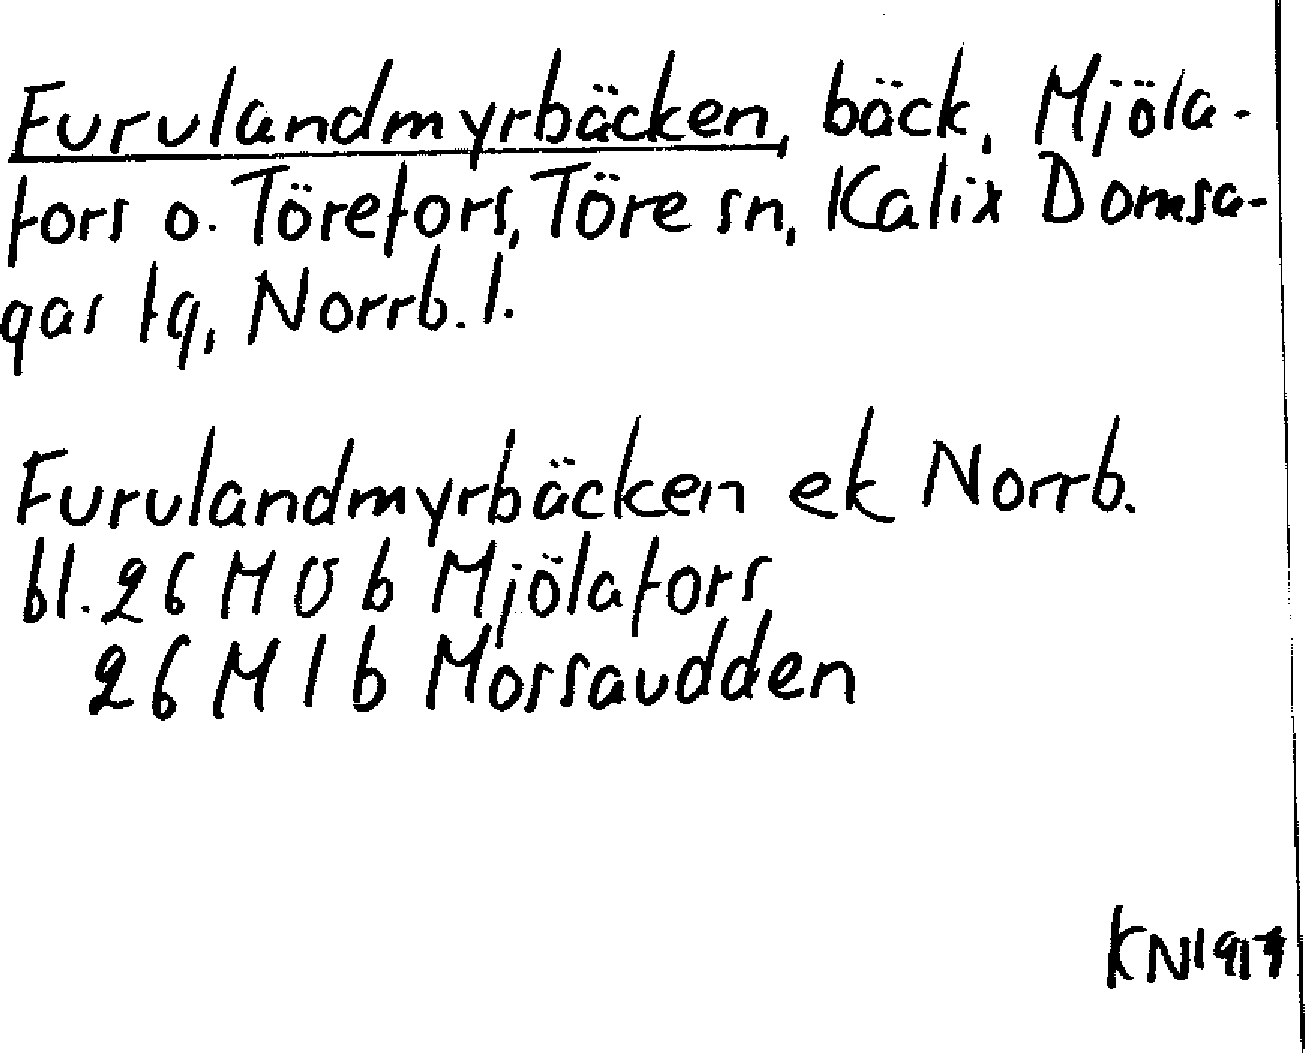 Furulandmyrbäcken, bäck, Mjöla-
fors o. Törefors, Töre sn, Kalix Domsa-
gas tg, Norrb. l.
Furulandmyrbäcken ek Norrb.
bl. 26 M 0 b Mjölafors
26 M 1 b Mossaudden